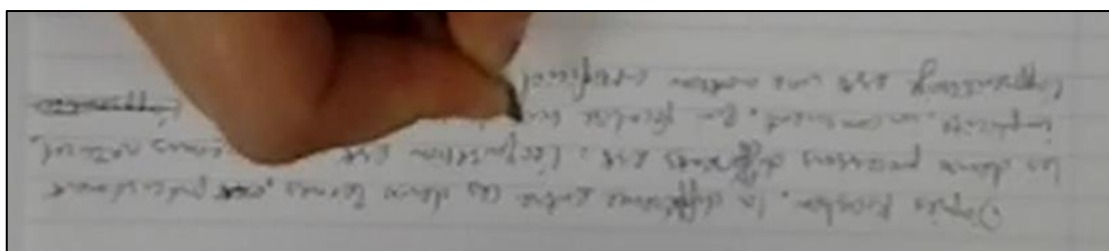 D'après Krashen, la différence entre les deux termes, est précisément
les deux processus différents est : L'acquisition est naturel,
implicite, inconscient. En
L'apprentissage est une notion artificiel